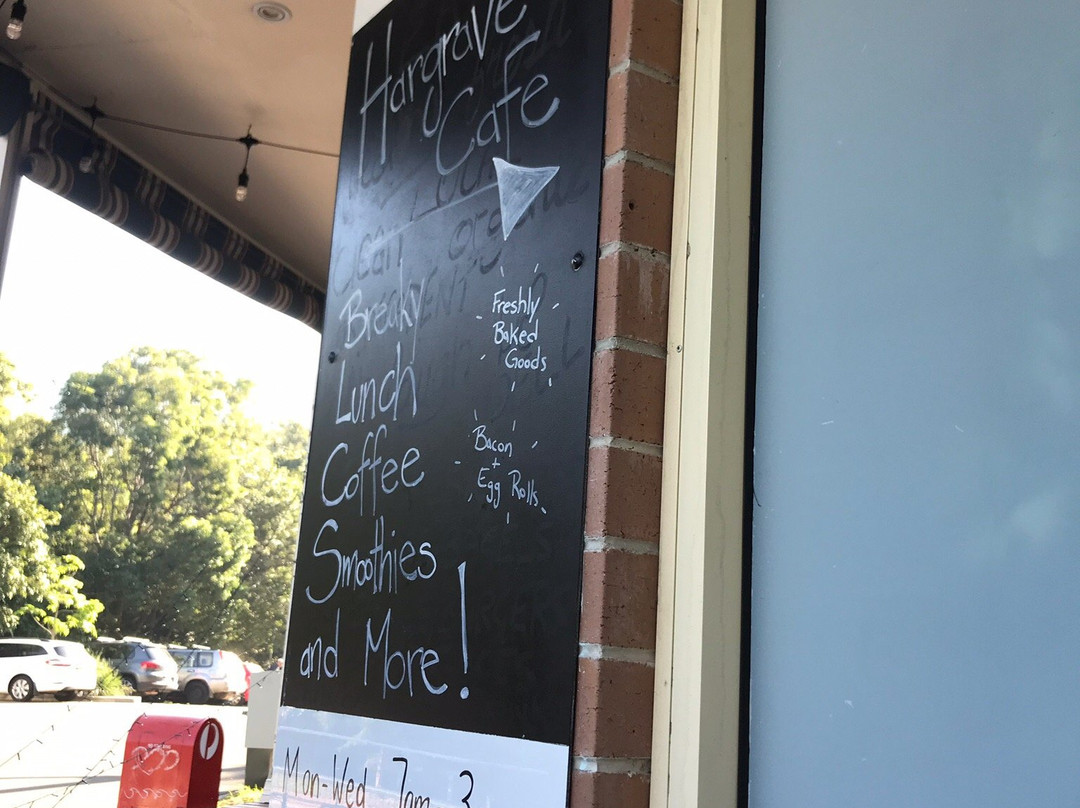 Hargrave
Cafe
Breaky
Lunch
Coffee
Smoothies
and More!
Freshly
Baked
Goods
Bacon
+
Egg Rolls
Mon-Wed 7am 3